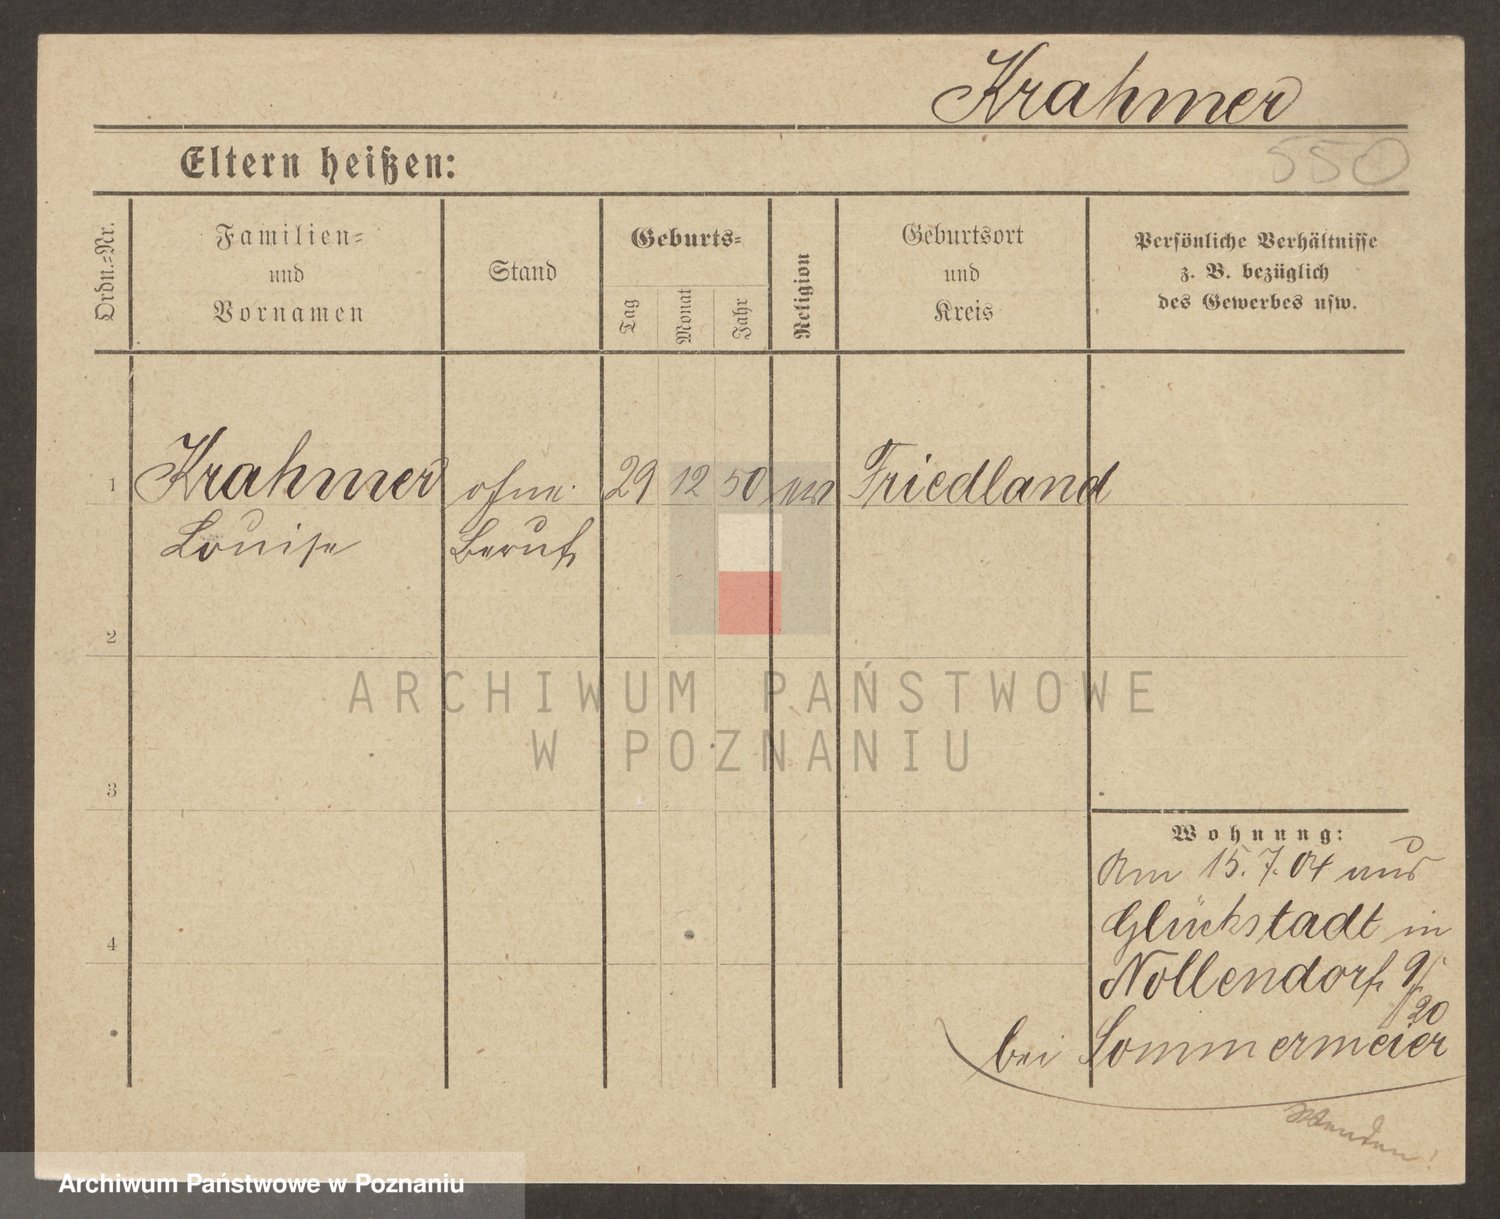 Krahmer
550
Eltern heißen:
Ordn.-Nr.
Familien-
und
Vornamen
Stand
Geburts-
Tag
Monat
Jahr
Religion
Geburtsort
und
Kreis
Persönliche Verhältnisse
z. B. bezüglich
des Gewerbes usw.
1 Krahmer ohne 29 12 50 ev Friedland
Louise Beruf
2
3
4
Wohnung:
Am 15.7.04 aus
Glückstadt in
Nollendorf
20
bei Sommermeier
Wenden!
ARCHIWUM PAŃSTWOWE
W POZNANIU
Archiwum Państwowe w Poznaniu